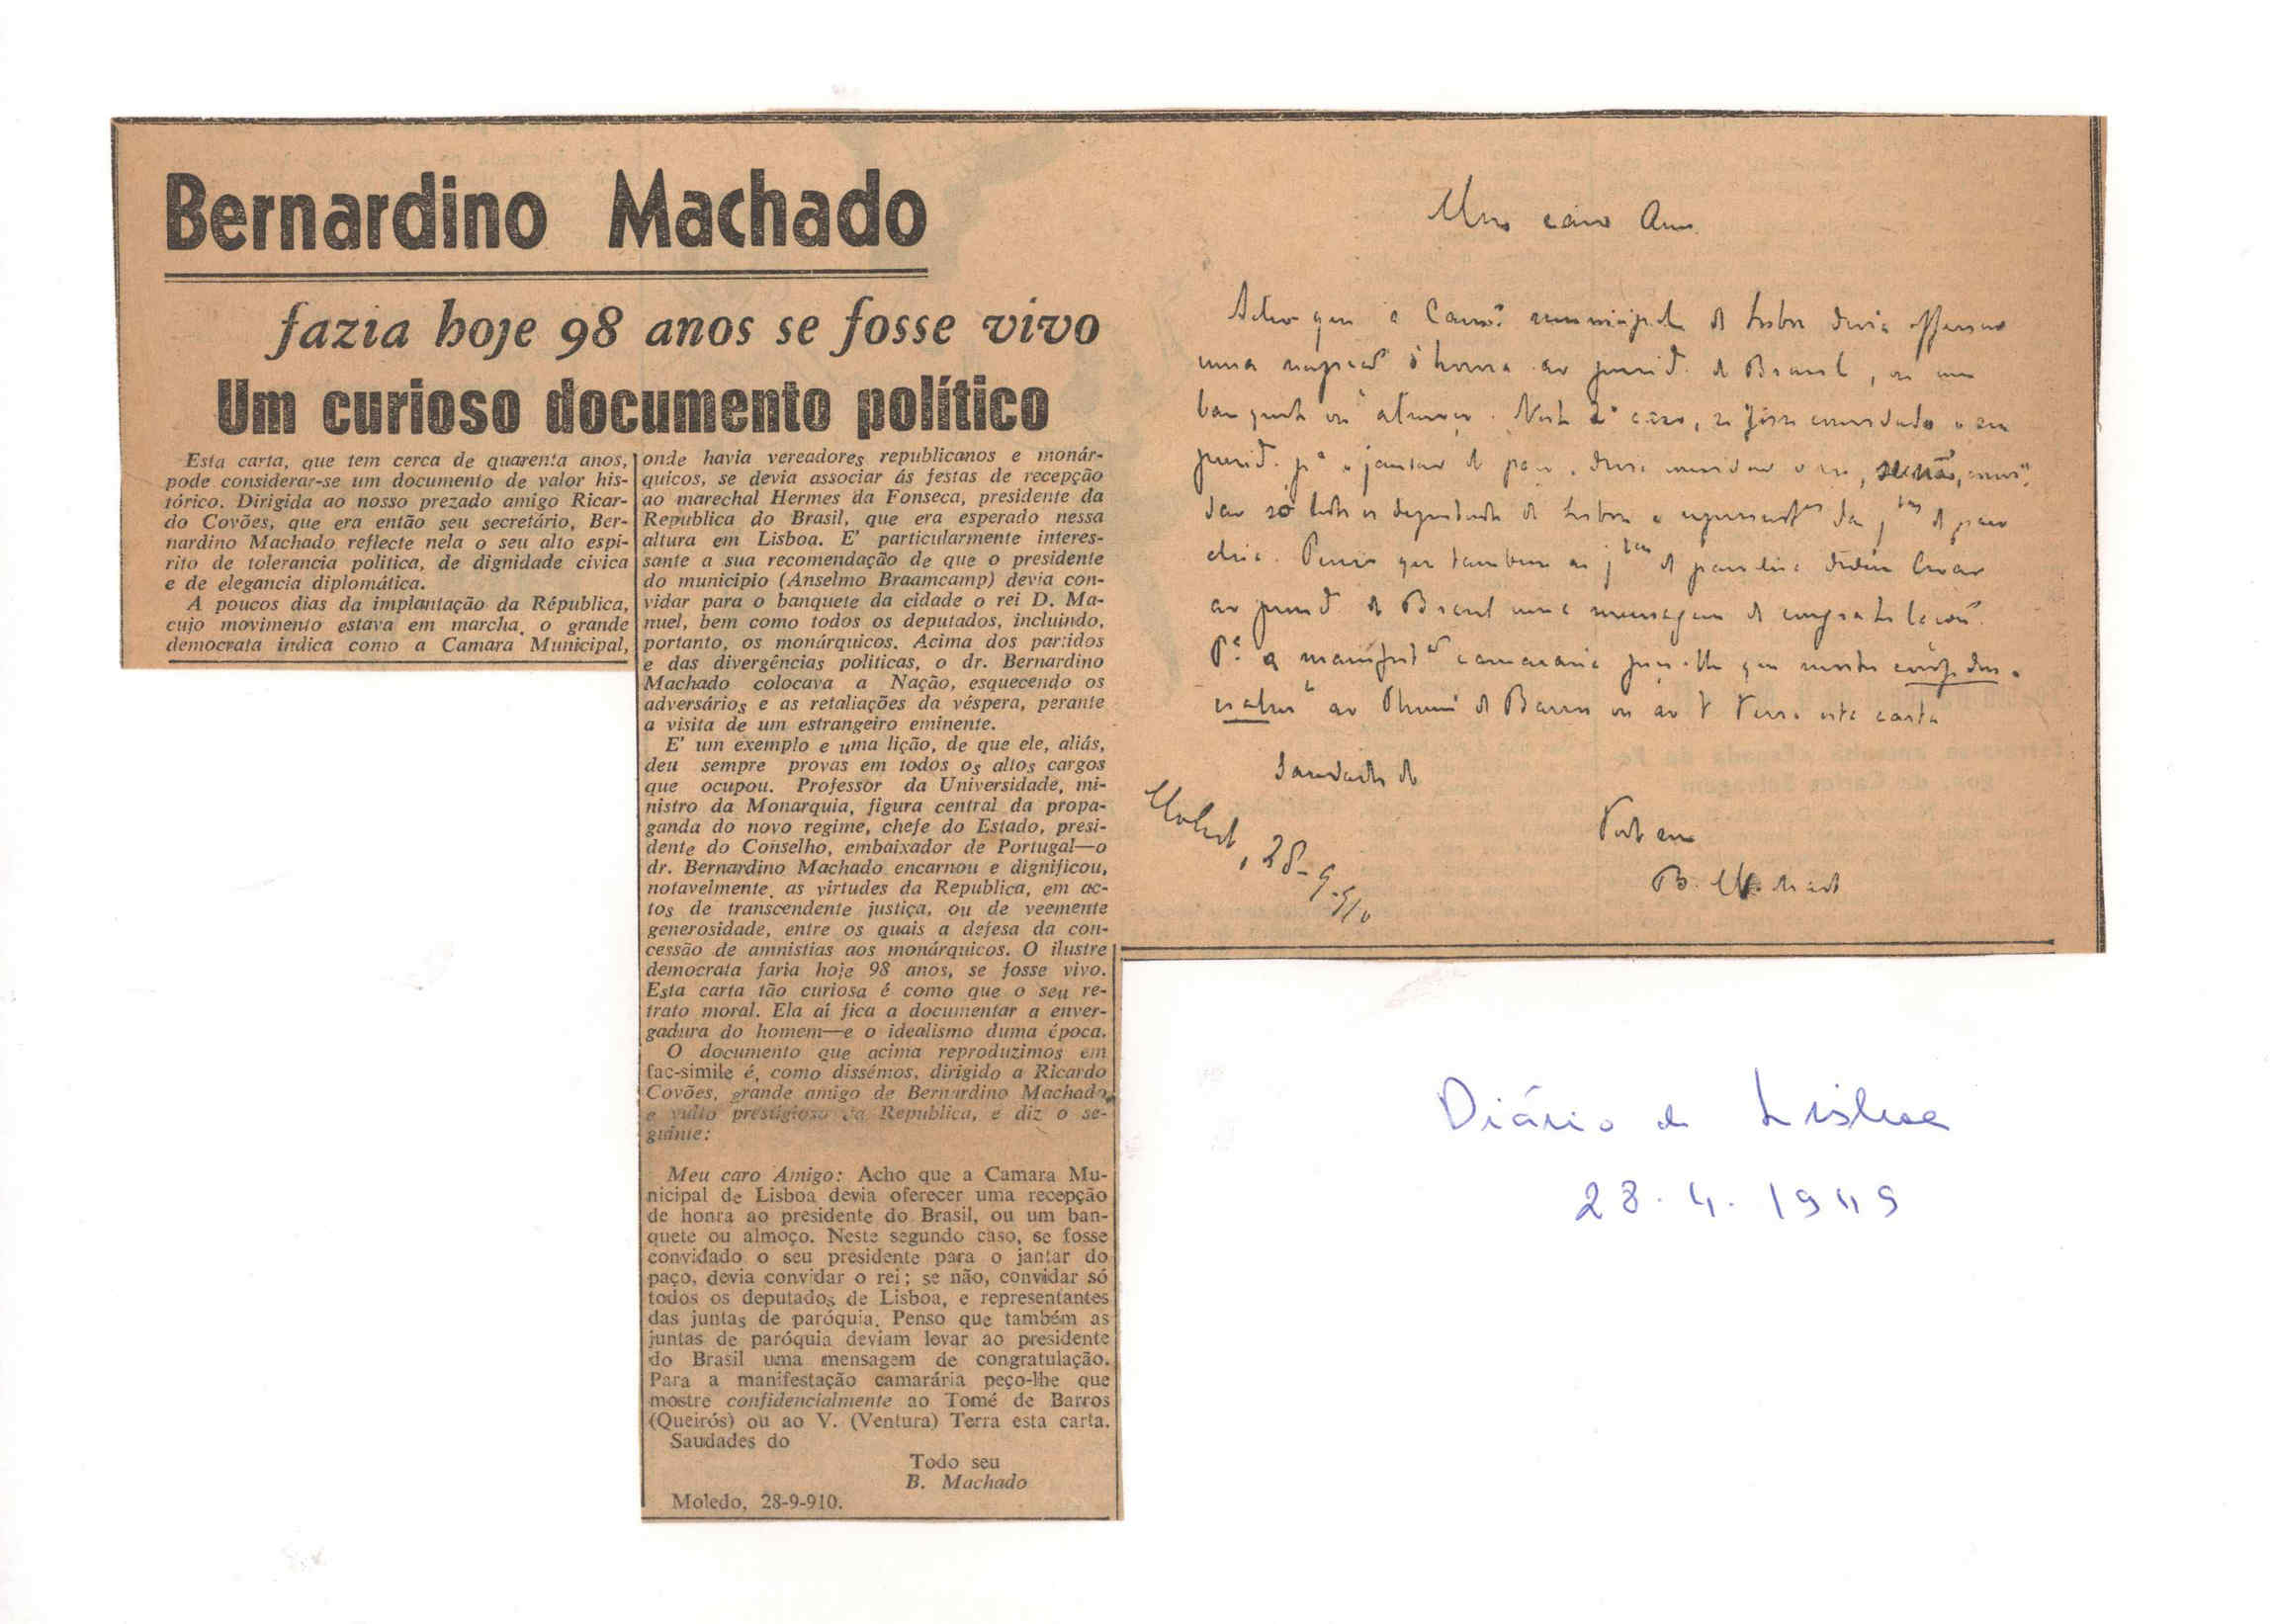 Bernardino Machado
fazia hoje 98 anos se fosse vivo
Um curioso documento político
Esta carta, que tem cerca de quarenta anos,
pode considerar-se um documento de valor his-
tórico. Dirigida ao nosso prezado amigo Ricar-
do Covões, que era então seu secretário, Ber-
nardino Machado reflecte nela o seu alto espi-
rito de tolerancia politica, de dignidade civica
e de elegancia diplomática.
A poucos dias da implantação da Républica,
cujo movimento estava em marcha, o grande
democrata indica como a Camara Municipal,
onde havia vereadores republicanos e monár-
quicos, se devia associar ás festas de recepção
ao marechal Hermes da Fonseca, presidente da
Republica do Brasil, que era esperado nessa
altura em Lisboa. E' particularmente interes-
sante a sua recomendação de que o presidente
do municipio (Anselmo Braamcamp) devia con-
vidar para o banquete da cidade o rei D. Ma-
nuel, bem como todos os deputados, incluindo,
portanto, os monárquicos. Acima dos partidos
e das divergências politicas, o dr. Bernardino
Machado colocava a Nação, esquecendo os
adversários e as retaliações da véspera, perante
a visita de um estrangeiro eminente.
E' um exemplo e uma lição, de que ele, aliás,
deu sempre provas em todos os altos cargos
que ocupou. Professor da Universidade, mi-
nistro da Monarquia, figura central da propa-
ganda do novo regime, chefe do Estado, presi-
dente do Conselho, embaixador de Portugal—o
dr. Bernardino Machado encarnou e dignificou,
notavelmente, as virtudes da Republica, em ac-
tos de transcendente justiça, ou de veemente
generosidade, entre os quais a defesa da con-
cessão de amnistias aos monárquicos. O ilustre
democrata faria hoje 98 anos, se fosse vivo.
Esta carta tão curiosa é como que o seu re-
trato moral. Ela aí fica a documentar a enver-
gadura do homem—e o idealismo duma época.
O documento que acima reproduzimos em
fac-simile é, como dissémos, dirigido a Ricardo
Covões, grande amigo de Bernardino Machado,
e vulto prestigioso da Republica, e diz o se-
guinte:
Meu caro Amigo: Acho que a Camara Mu-
nicipal de Lisboa devia oferecer uma recepção
de honra ao presidente do Brasil, ou um ban-
quete ou almoço. Neste segundo caso, se fosse
convidado o seu presidente para o jantar do
paço, devia convidar o rei; se não, convidar só
todos os deputados de Lisboa, e representantes
das juntas de paróquia. Penso que também as
juntas de paróquia deviam levar ao presidente
do Brasil uma mensagem de congratulação.
Para a manifestação camarária peço-lhe que
mostre confidencialmente ao Tomé de Barros
(Queirós) ou ao V. (Ventura) Terra esta carta.
Saudades do
Todo seu
B. Machado
Moledo, 28-9-910.
Meu caro Amo.
Acho que a Camª municipal de Lisboa devia offerecer
uma recepção d'honra ao presid. do Brasil, ou um
banquete ou almoço. Neste 2º caso, se fosse convidado o seu
presid. pª o jantar do paço, devia convidar o rei, se não, convi-
dar só todos os deputados de Lisboa e representes das jtas de paro
chia. Penso que tambem as jtas de parochia deviam levar
ao presid. do Brasil uma mensagem de congratulação.
Pª a manifestão camararia peço-lhe que mostre confiden-
cialmte ao Thomé de Barros ou ao V. Terra esta carta
Saudades do
Todo seu
B. Machado
Moledo, 28-9-910
Diário de Lisboa
28.4.1949